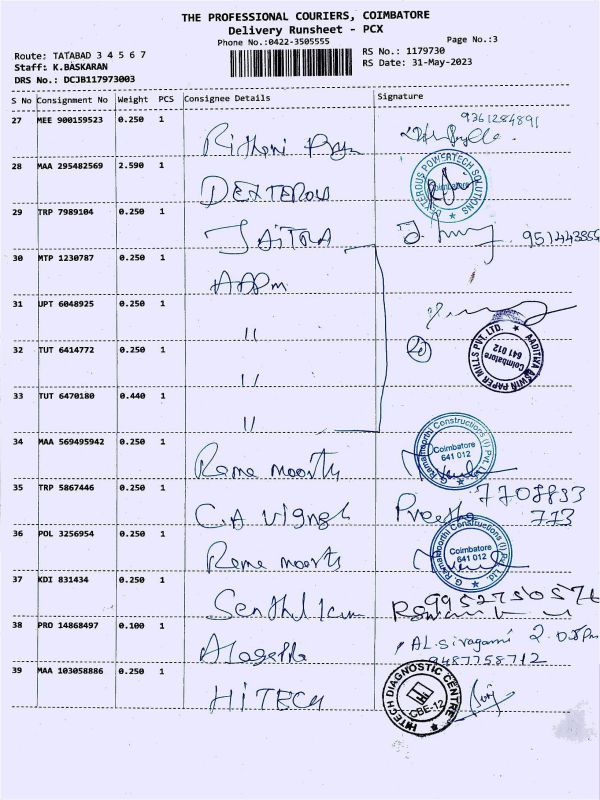 THE PROFESSIONAL COURIERS, COIMBATORE
Delivery Runsheet - PCX
Phone No.:0422-3505555
Page No.:3
Route: TATABAD 3 4 5 6 7
RS No.: 1179730
Staff: K.BASKARAN
RS Date: 31-May-2023
DRS No.: DCJB117973003
S No Consignment No Weight PCS Consignee Details Signature
27 MEE 900159523 0.250 1 9361284891
28 MAA 295482569 2.590 1 DEXTEROUS
DEXTEROUS POWERTECH SOLUTIONS Coimbatore
29 TRP 7989104 0.250 1 JAITRA
30 MTP 1230787 0.250 1 AAPM
31 UPT 6048925 0.250 1 "
32 TUT 6414772 0.250 1 "
AADITYA ASWIN PAPER MILLS PVT. LTD. Coimbatore 641 012
33 TUT 6470180 0.440 1 "
34 MAA 569495942 0.250 1 Rama moorthy
G. Ramamoorthi Constructions (I) Pvt. Ltd. Coimbatore 641 012
35 TRP 5867446 0.250 1 C.A Vignesh Preetha 7708833
773
36 POL 3256954 0.250 1 Rama moorthy
G. Ramamoorthi Constructions (I) Pvt. Ltd. Coimbatore 641 012
37 KDI 831434 0.250 1 Senthil kum 9952750576
38 PRO 14868497 0.100 1 Alagappa AL.Sivagami 2.05pm
9487758712
39 MAA 103058886 0.250 1 HiTECH
HITECH DIAGNOSTIC CENTRE CBE-12